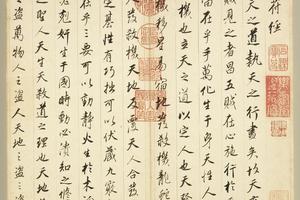 符經
天之道執天之行盡矣故天
賊見之者昌五賊在心施行於
宙在乎手萬化生乎身天性人
機也立天之道以定人也天
機移星易宿地發殺機龍蛇
發殺機天地反覆天人合發
定基性有巧拙可以伏藏九竅
在乎三要可以動靜火生於木
必剋姦生於國時動必潰知之修
之聖人天生天殺道之理也天地
之盜萬物人之盜人天地之盜三盜